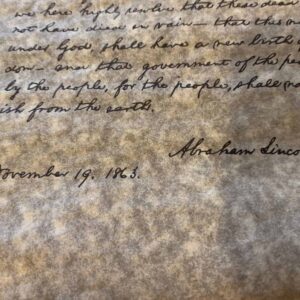 we here highly resolve that these dead
not have died in vain — that this
under God, shall have a new birth
dom — and that government of the
by the people, for the people, shall
ish from the earth.
Abraham Linco
November 19. 1863.